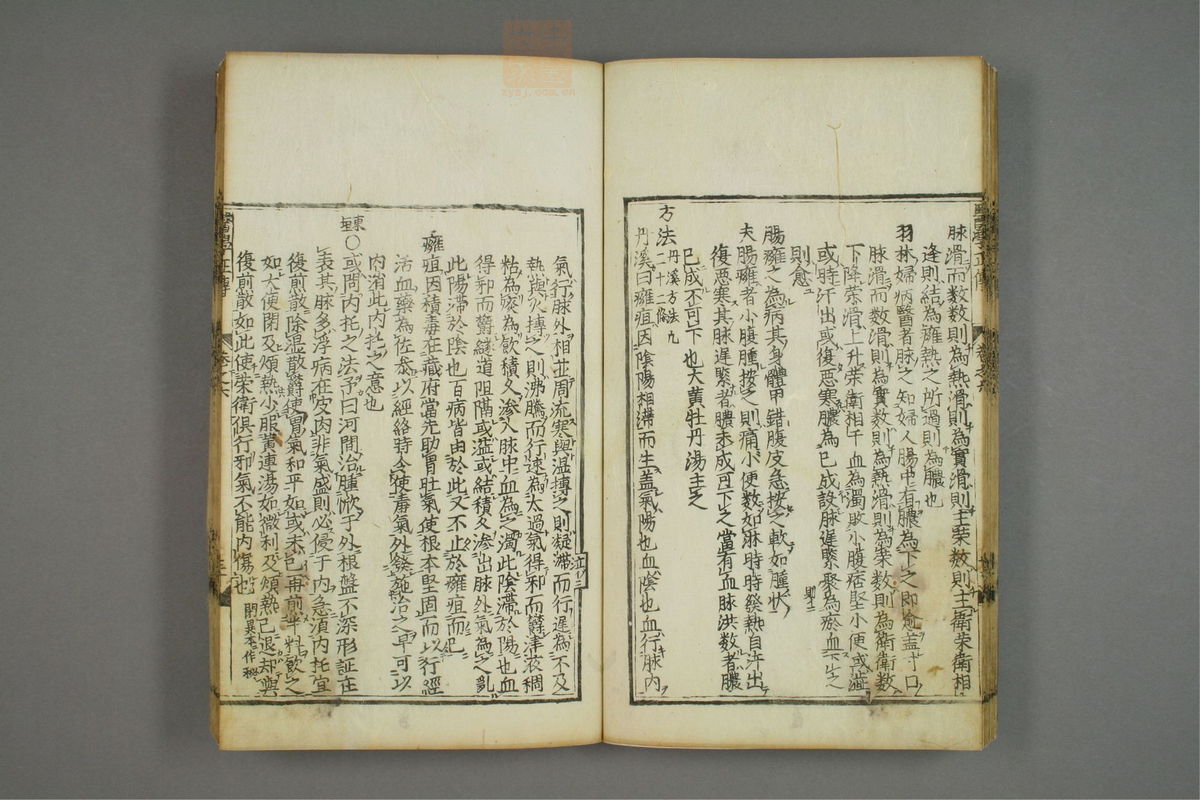 脉滑而數數則為熱滑則為實滑則主榮數則主衛榮衛相
逢則結為癰熱之所過則為膿也
羽林婦病醫者脉之知婦人腸中有膿為下之即愈盖寸口
脉滑而数滑則為實数則為熱滑則為榮数則為衛衛数
下降榮滑上升榮衛相干血為濁敗小腹痞堅小便或澁
或時汗出或復惡寒膿為已成設脉遲緊聚為瘀血下之
則愈
腸癰之為病其身體甲錯腹皮急按之軟如腫状
夫腸癰者小腹腫按之則痛小便数如淋時時發熱自汗出
復惡寒其脉遲緊者膿未成可下之當有血脉洪数者膿
已成不可下也大黄牡丹湯主之
方法
丹溪方法九
二十二條
丹溪曰癰疽因陰陽相滯而生盖氣陽也血陰也血行脉内
氣行脉外相並周流寒與湿搏之則凝滯而行遲為不及
熱與火搏之則沸騰而行速為太過氣得邪而欝津液稠
粘為痰為飲積久滲入脉中血為之濁此陰滯於陽也血
得邪而欝縫道阻隔或溢或結積久滲出脉外氣為之亂
此陽滯於陰也百病皆由於此又不止於癰疽而已
癰疽因積毒在藏府當先助胃壮氣使根本堅固而以行經
活血藥為佐參以經絡時令使毒氣外發施治之早可以
内消此内托之意也
東垣
○或問内托之法予曰河間治腫焮于外根盤不深形証在
表其脉多浮病在皮肉非氣盛則必侵于内急須内托宜
復煎散除湿散欝使胃氣和平如或未已再煎半料飲之
如大便閉及煩熱少服黄連湯如微利及煩熱已退却與
復煎散如此使榮衛俱行邪氣不能内傷也
閉異本作秘